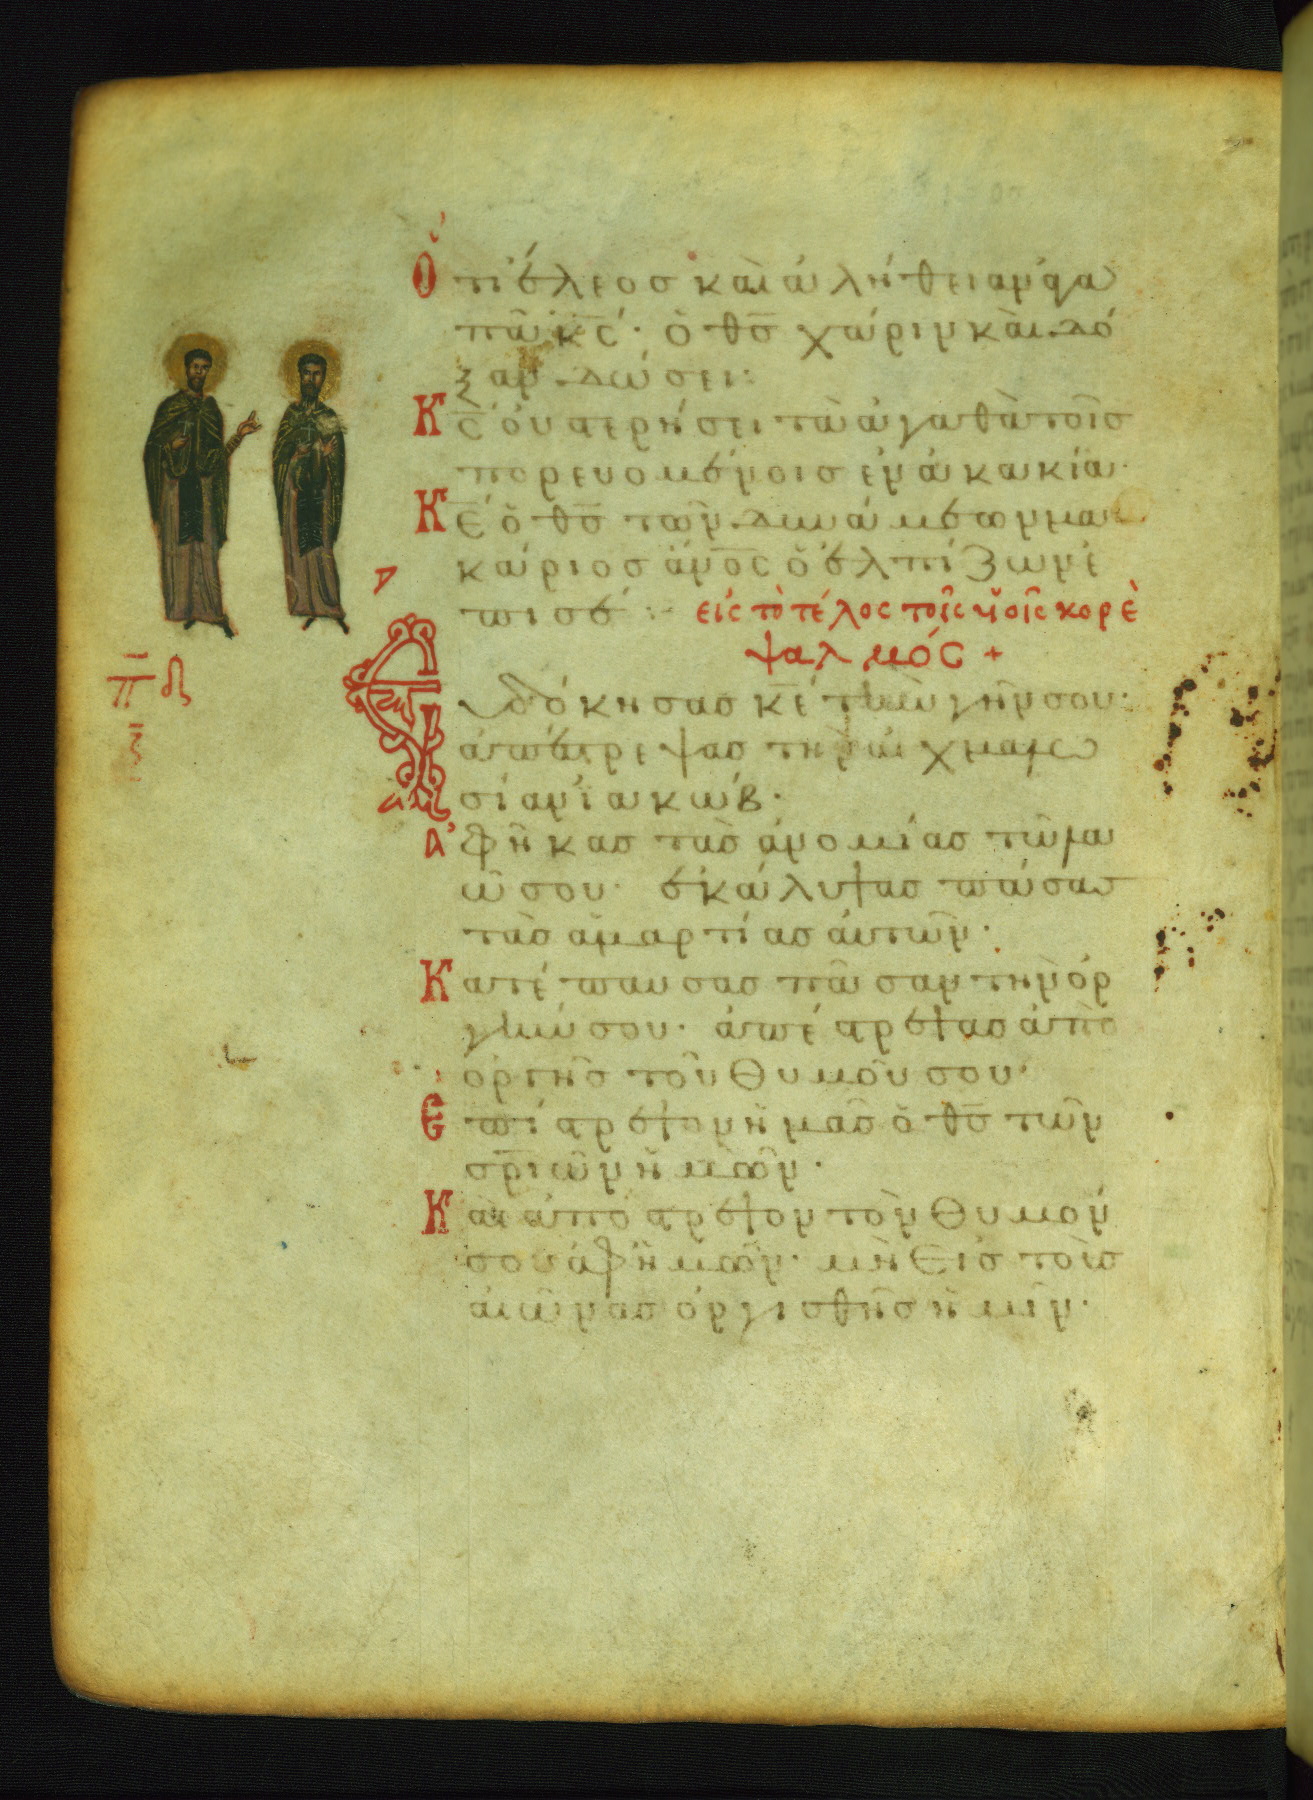 Ὅτι ἔλεος καὶ ἀλήθειαν ἀγα
πᾶ κ̅ς̅· ὁ θ̅ς̅ χάριν καὶ δό
ξαν δώσει:
Κ̅ς̅ ὀυ στερήσει τὰ ἀγαθὰ τοῖς
πορευομένοις ἐν ἀκακία·
Κ̅ε̅ ὁ θ̅ς̅ τῶν δυνάμεων μα
κάριος ἀν̅ο̅ς̅ ὁ ἐλπίζων ἐ
πι σέ:
εἰς τὸ τέλος τοῖς ὑ̅οῖς κορὲ
ψαλμός +
π̅δ̅
Ευδόκησας κ̅ε̅ τὴν γῆν σου:
ἀπέστρεψας τὴν αἰχμαλω
σίαν ἰακώβ·
Ἀφῆκας τὰς ἀνομίας τῶ λα
ῶ σου· ἐκάλυψας πάσας
τὰς ἁμαρτίας ἀυτῶν·
Κατέπαυσας πᾶσαν τὴν ὀρ
γήν σου· ἀπέστρεψας ἀπὸ
ὀργῆς τοῦ θυμοῦ σου·
Ἐπίστρεψον ἡμᾶς ὁ θ̅ς̅ τῶν
σ̅ρ̅ιῶν ἡμῶν·
Καὶ ἀπόστρεψον τὸν θυμόν
σου ἀφ' ἡμῶν· μὴ εἰς τοὺς
ἀιῶνας ὀργισθῆς ἡμῖν·